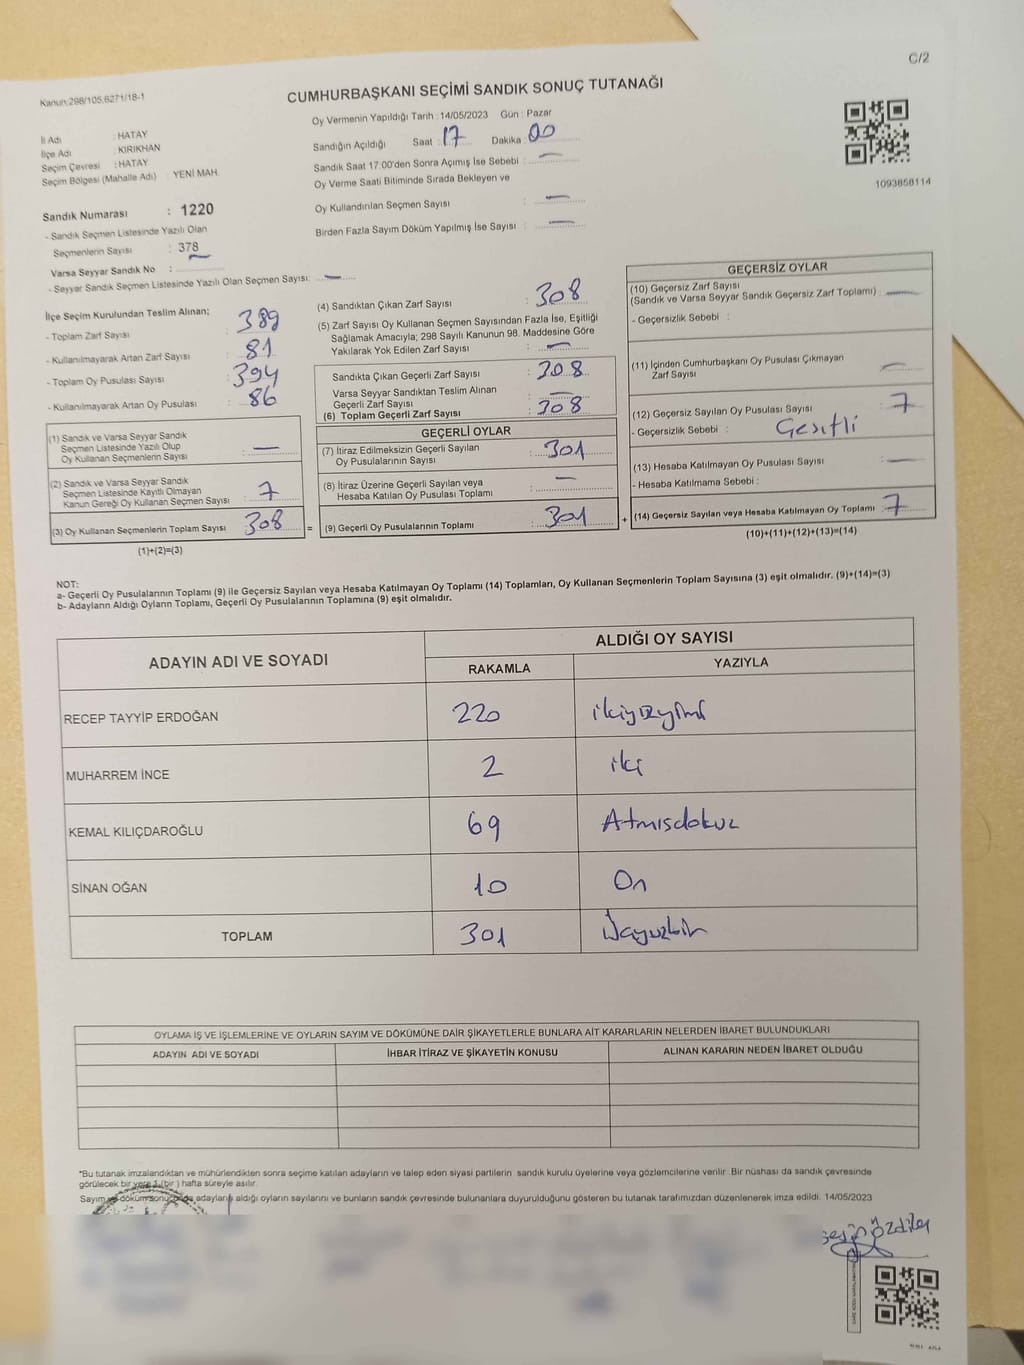 C/2
Kanun:298/105,6271/18-1
CUMHURBAŞKANI SEÇİMİ SANDIK SONUÇ TUTANAĞI
Oy Vermenin Yapıldığı Tarih : 14/05/2023 Gün : Pazar
İl Adı : HATAY
İlçe Adı : KIRIKHAN
Seçim Çevresi : HATAY
Seçim Bölgesi (Mahalle Adı) : YENİ MAH.
Sandığın Açıldığı Saat : 17 Dakika : 00
Sandık Saat 17:00'den Sonra Açımış İse Sebebi : —
Oy Verme Saati Bitiminde Sırada Bekleyen ve
Oy Kullandırılan Seçmen Sayısı : —
Birden Fazla Sayım Döküm Yapılmış İse Sayısı : —
1093858114
Sandık Numarası : 1220
- Sandık Seçmen Listesinde Yazılı Olan
Seçmenlerin Sayısı : 378
Varsa Seyyar Sandık No :
- Seyyar Sandık Seçmen Listesinde Yazılı Olan Seçmen Sayısı: —
İlçe Seçim Kurulundan Teslim Alınan;
- Toplam Zarf Sayısı : 389
- Kullanılmayarak Artan Zarf Sayısı : 81
- Toplam Oy Pusulası Sayısı : 394
- Kullanılmayarak Artan Oy Pusulası : 86
(1) Sandık ve Varsa Seyyar Sandık
Seçmen Listesinde Yazılı Olup
Oy Kullanan Seçmenlerin Sayısı : —
(2) Sandık ve Varsa Seyyar Sandık
Seçmen Listesinde Kayıtlı Olmayan
Kanun Gereği Oy Kullanan Seçmen Sayısı : 7
(3) Oy Kullanan Seçmenlerin Toplam Sayısı : 308
(1)+(2)=(3)
(4) Sandıktan Çıkan Zarf Sayısı : 308
(5) Zarf Sayısı Oy Kullanan Seçmen Sayısından Fazla İse, Eşitliği
Sağlamak Amacıyla; 298 Sayılı Kanunun 98. Maddesine Göre
Yakılarak Yok Edilen Zarf Sayısı : —
Sandıkta Çıkan Geçerli Zarf Sayısı : 308
Varsa Seyyar Sandıktan Teslim Alınan
Geçerli Zarf Sayısı : —
(6) Toplam Geçerli Zarf Sayısı : 308
GEÇERLİ OYLAR
(7) İtiraz Edilmeksizin Geçerli Sayılan
Oy Pusulalarının Sayısı : 301
(8) İtiraz Üzerine Geçerli Sayılan veya
Hesaba Katılan Oy Pusulası Toplamı : —
= (9) Geçerli Oy Pusulalarının Toplamı : 301
GEÇERSİZ OYLAR
(10) Geçersiz Zarf Sayısı
(Sandık ve Varsa Seyyar Sandık Geçersiz Zarf Toplamı) : —
- Geçersizlik Sebebi :
(11) İçinden Cumhurbaşkanı Oy Pusulası Çıkmayan
Zarf Sayısı : —
(12) Geçersiz Sayılan Oy Pusulası Sayısı : 7
- Geçersizlik Sebebi : Gesitli
(13) Hesaba Katılmayan Oy Pusulası Sayısı : —
- Hesaba Katılmama Sebebi :
+ (14) Geçersiz Sayılan veya Hesaba Katılmayan Oy Toplamı : 7
(10)+(11)+(12)+(13)=(14)
NOT:
a- Geçerli Oy Pusulalarının Toplamı (9) ile Geçersiz Sayılan veya Hesaba Katılmayan Oy Toplamı (14) Toplamları, Oy Kullanan Seçmenlerin Toplam Sayısına (3) eşit olmalıdır. (9)+(14)=(3)
b- Adayların Aldığı Oyların Toplamı, Geçerli Oy Pusulalarının Toplamına (9) eşit olmalıdır.
ADAYIN ADI VE SOYADI ALDIĞI OY SAYISI
RAKAMLA YAZIYLA
RECEP TAYYİP ERDOĞAN 220 ikiyüzyirmi
MUHARREM İNCE 2 iki
KEMAL KILIÇDAROĞLU 69 Atmısdokuz
SİNAN OĞAN 10 On
TOPLAM 301 Üçyüzbir
OYLAMA İŞ VE İŞLEMLERİNE VE OYLARIN SAYIM VE DÖKÜMÜNE DAİR ŞİKAYETLERLE BUNLARA AİT KARARLARIN NELERDEN İBARET BULUNDUKLARI
ADAYIN ADI VE SOYADI İHBAR İTİRAZ VE ŞİKAYETİN KONUSU ALINAN KARARIN NEDEN İBARET OLDUĞU
*Bu tutanak imzalandıktan ve mühürlendikten sonra seçime katılan adayların ve talep eden siyasi partilerin sandık kurulu üyelerine veya gözlemcilerine verilir. Bir nüshası da sandık çevresinde
görülecek bir yere 1 (bir ) hafta süreyle asılır.
Sayım ve döküm sonucunda adayların aldığı oyların sayılarını ve bunların sandık çevresinde bulunanlara duyurulduğunu gösteren bu tutanak tarafımızdan düzenlenerek imza edildi. 14/05/2023
Özdiler